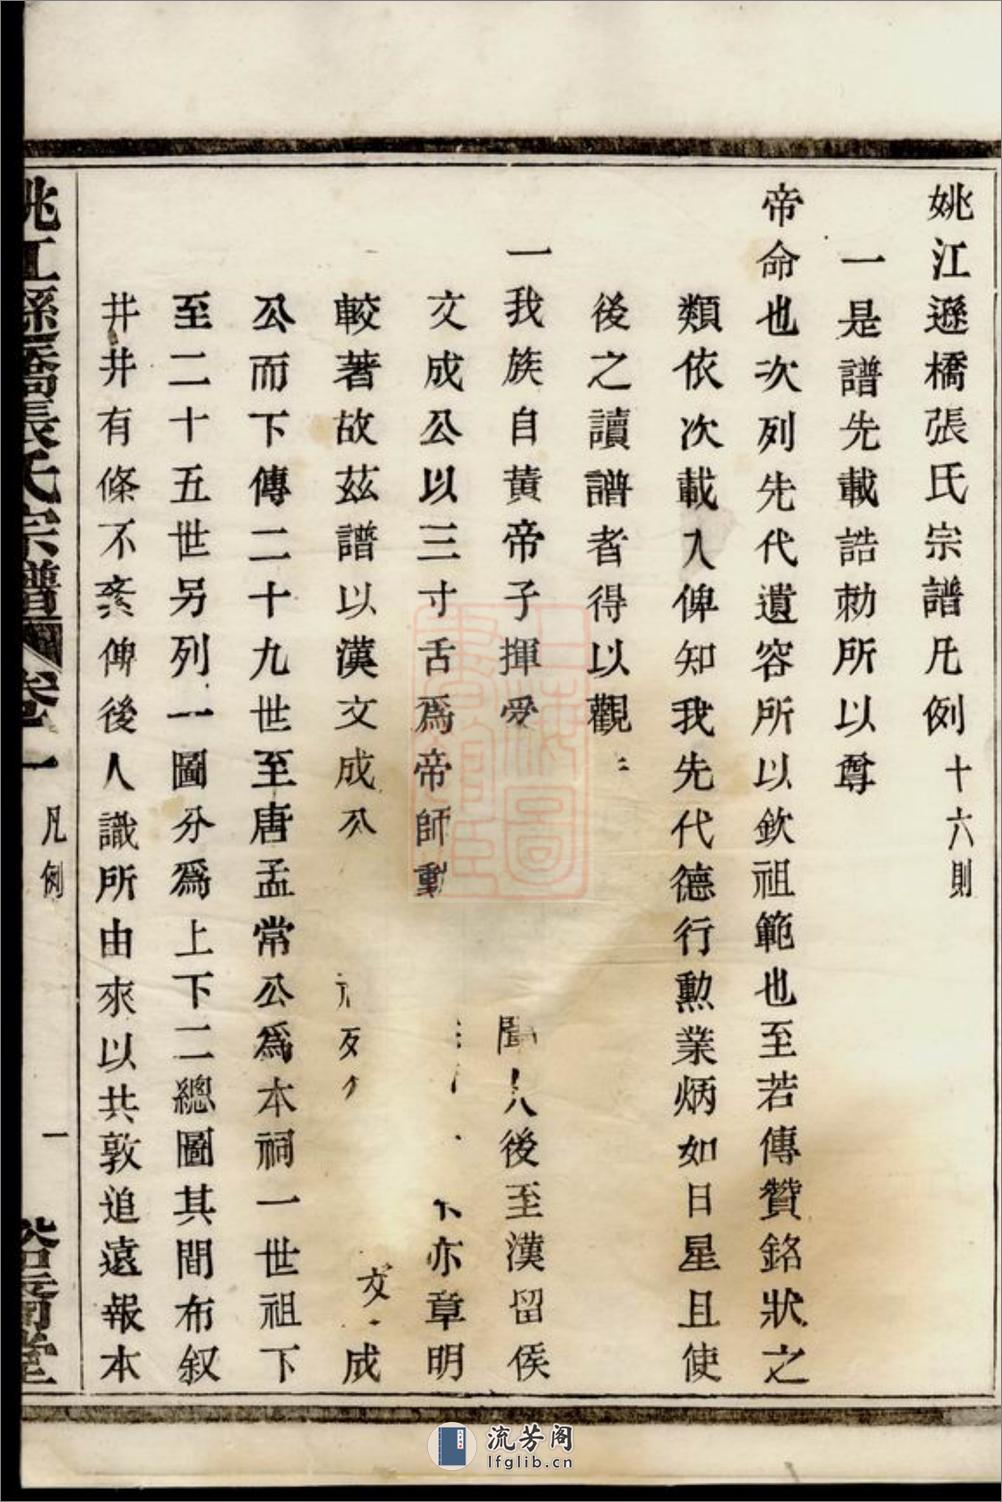 姚江遜橋張氏宗譜凡例十六則
一是譜先載誥勅所以尊
帝命也次列先代遺容所以欽祖範也至若傳贊銘狀之
類依次載入俾知我先代德行勲業炳如日星且使
後之讀譜者得以觀
一我族自黃帝子揮受聞人後至漢留侯
文成公以三寸舌爲帝師動亦章明
較著故茲譜以漢文成公列文成
公而下傳二十九世至唐孟常公爲本祠一世祖下
至二十五世另列一圖分爲上下二總圖其間布叙
井井有條不紊俾後人識所由來以共敦追遠報本
姚江遜橋張氏宗譜
卷一
凡例
一
裕壽堂
上海圖書館藏
流芳阁
lfglib.cn